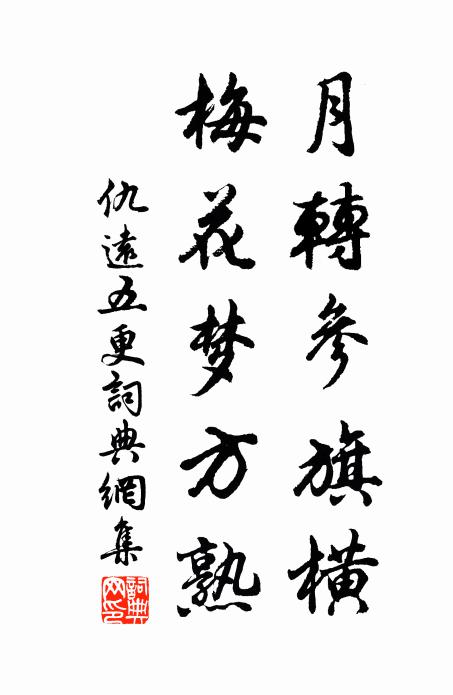 月轉參旗橫
梅花梦方熟
仇遠五更詞典網集
詞典网印